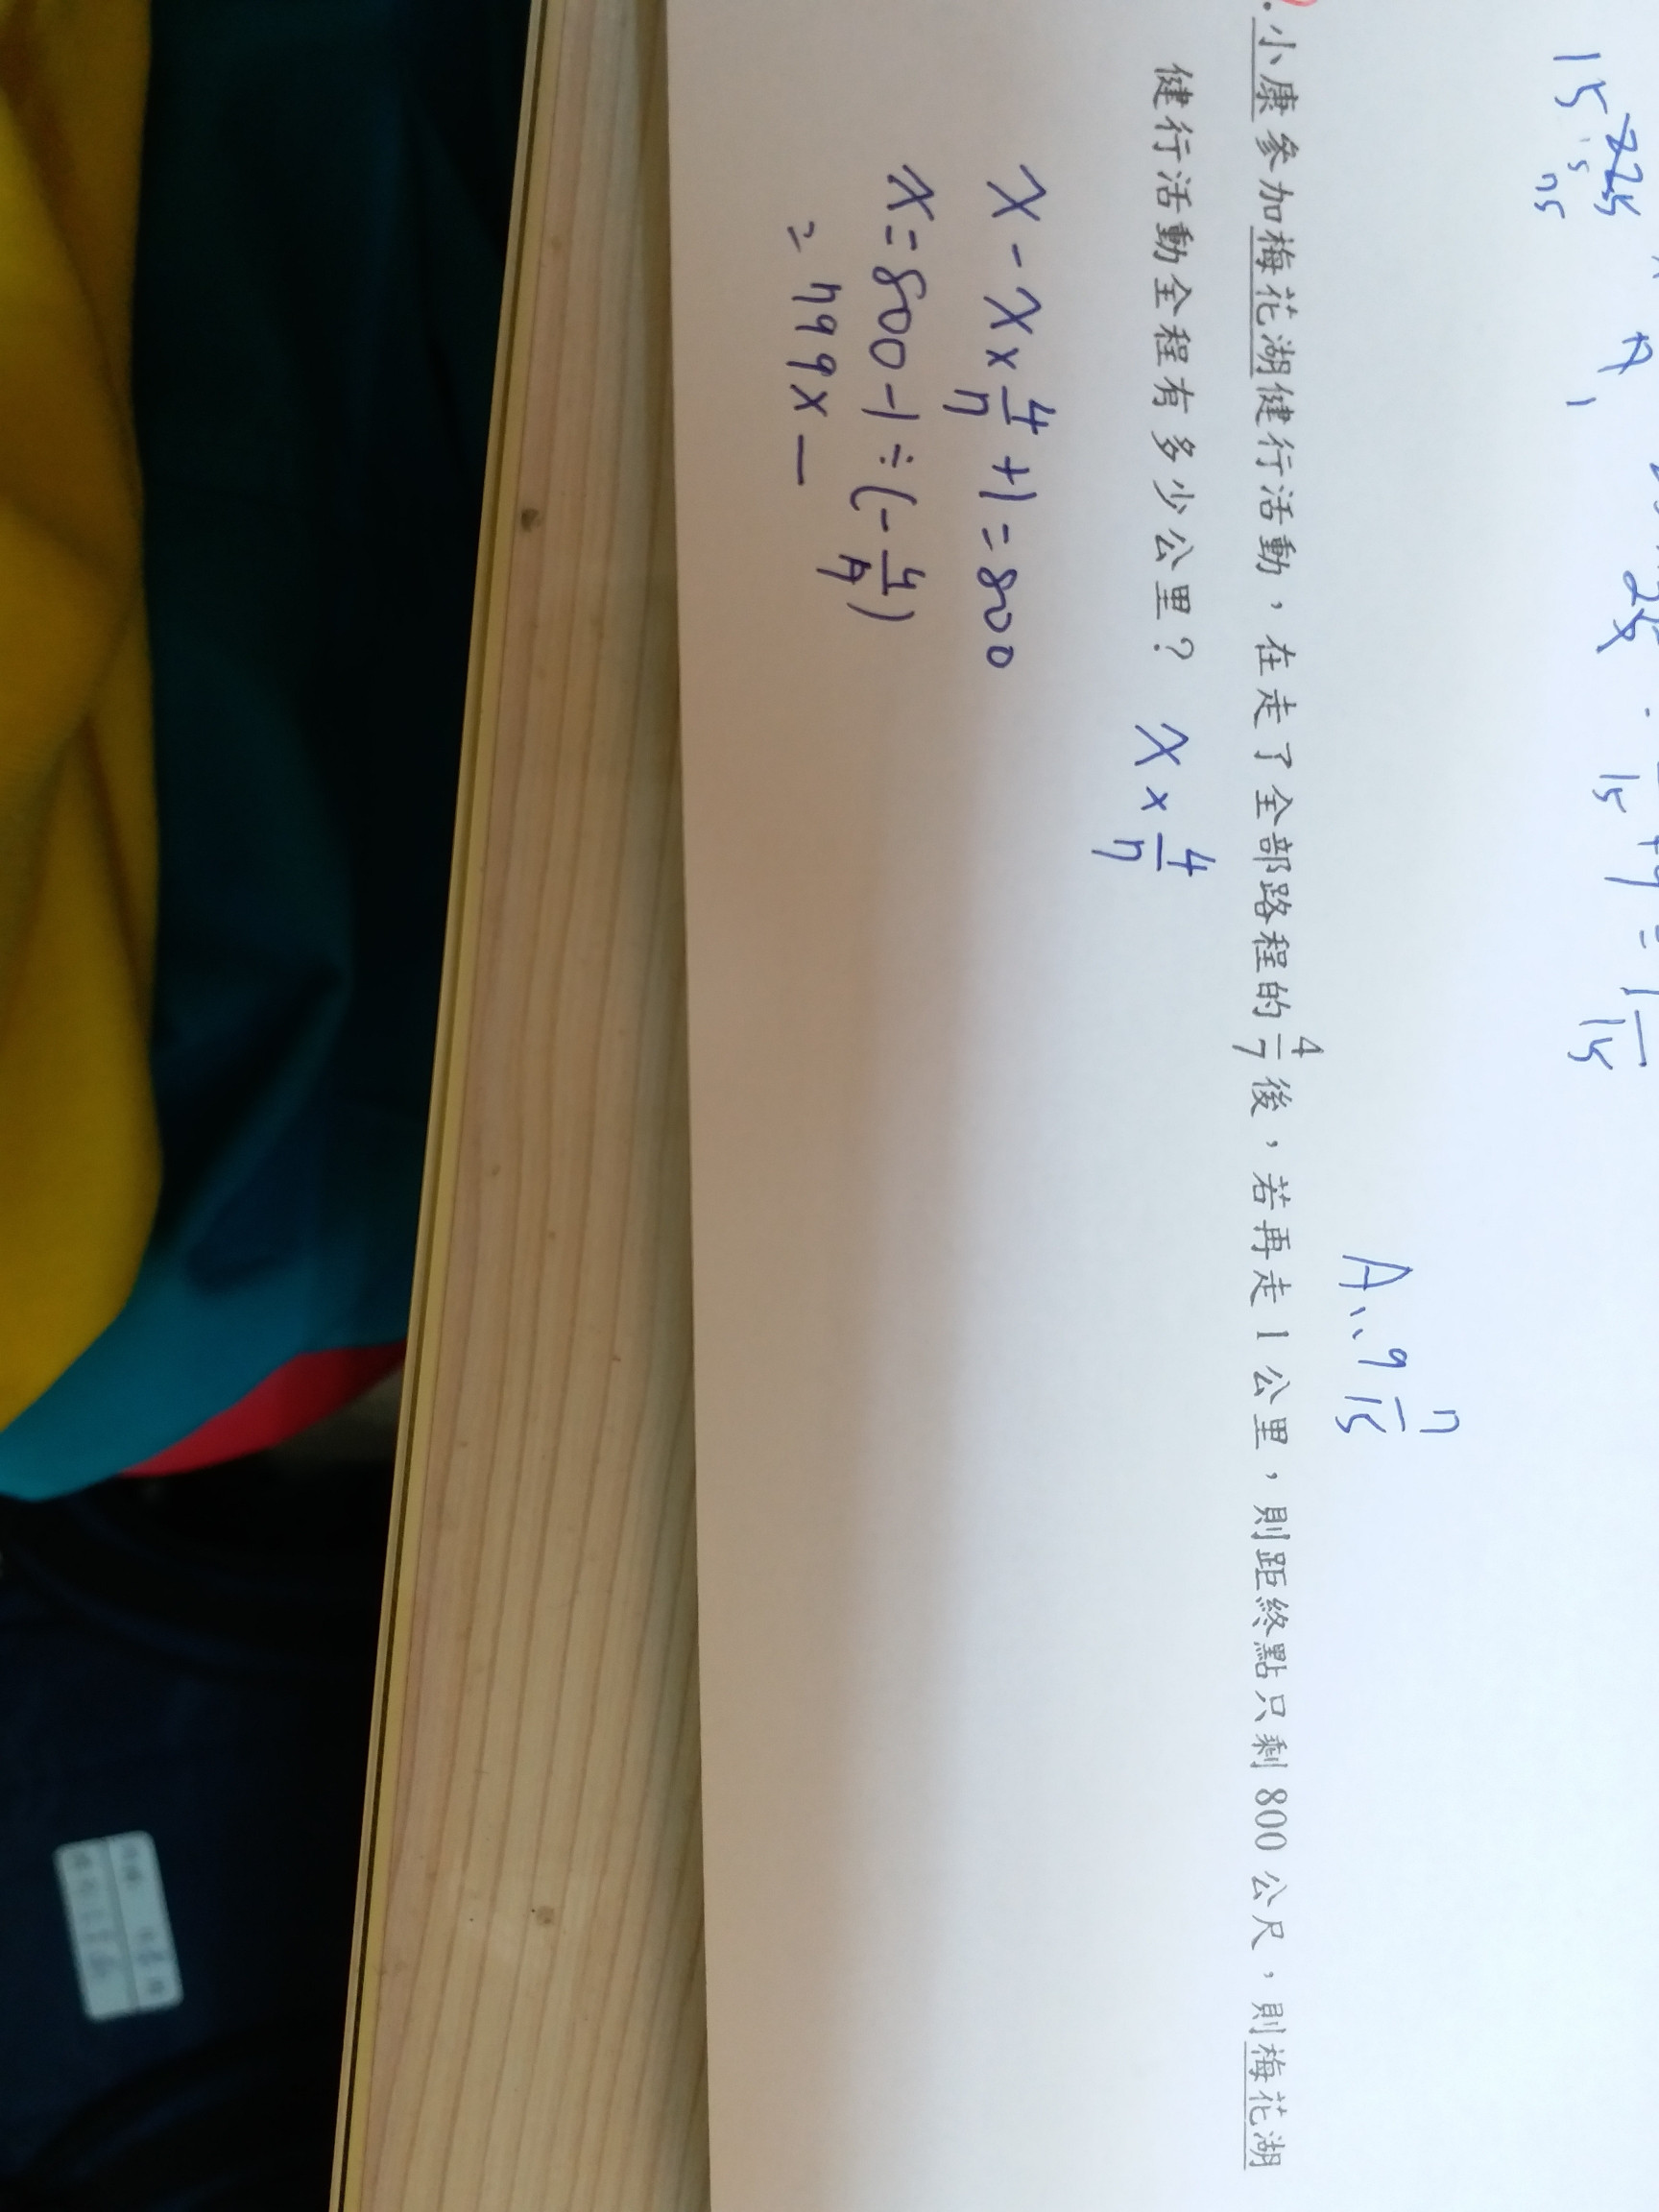 A、9 7/15
小康參加梅花湖健行活動，在走了全部路程的4/7後，若再走1公里，則距終點只剩800公尺，則梅花湖
健行活動全程有多少公里？ x×4/7
x-x×4/7+1=800
x=800-1÷(-4/7)
=799×—